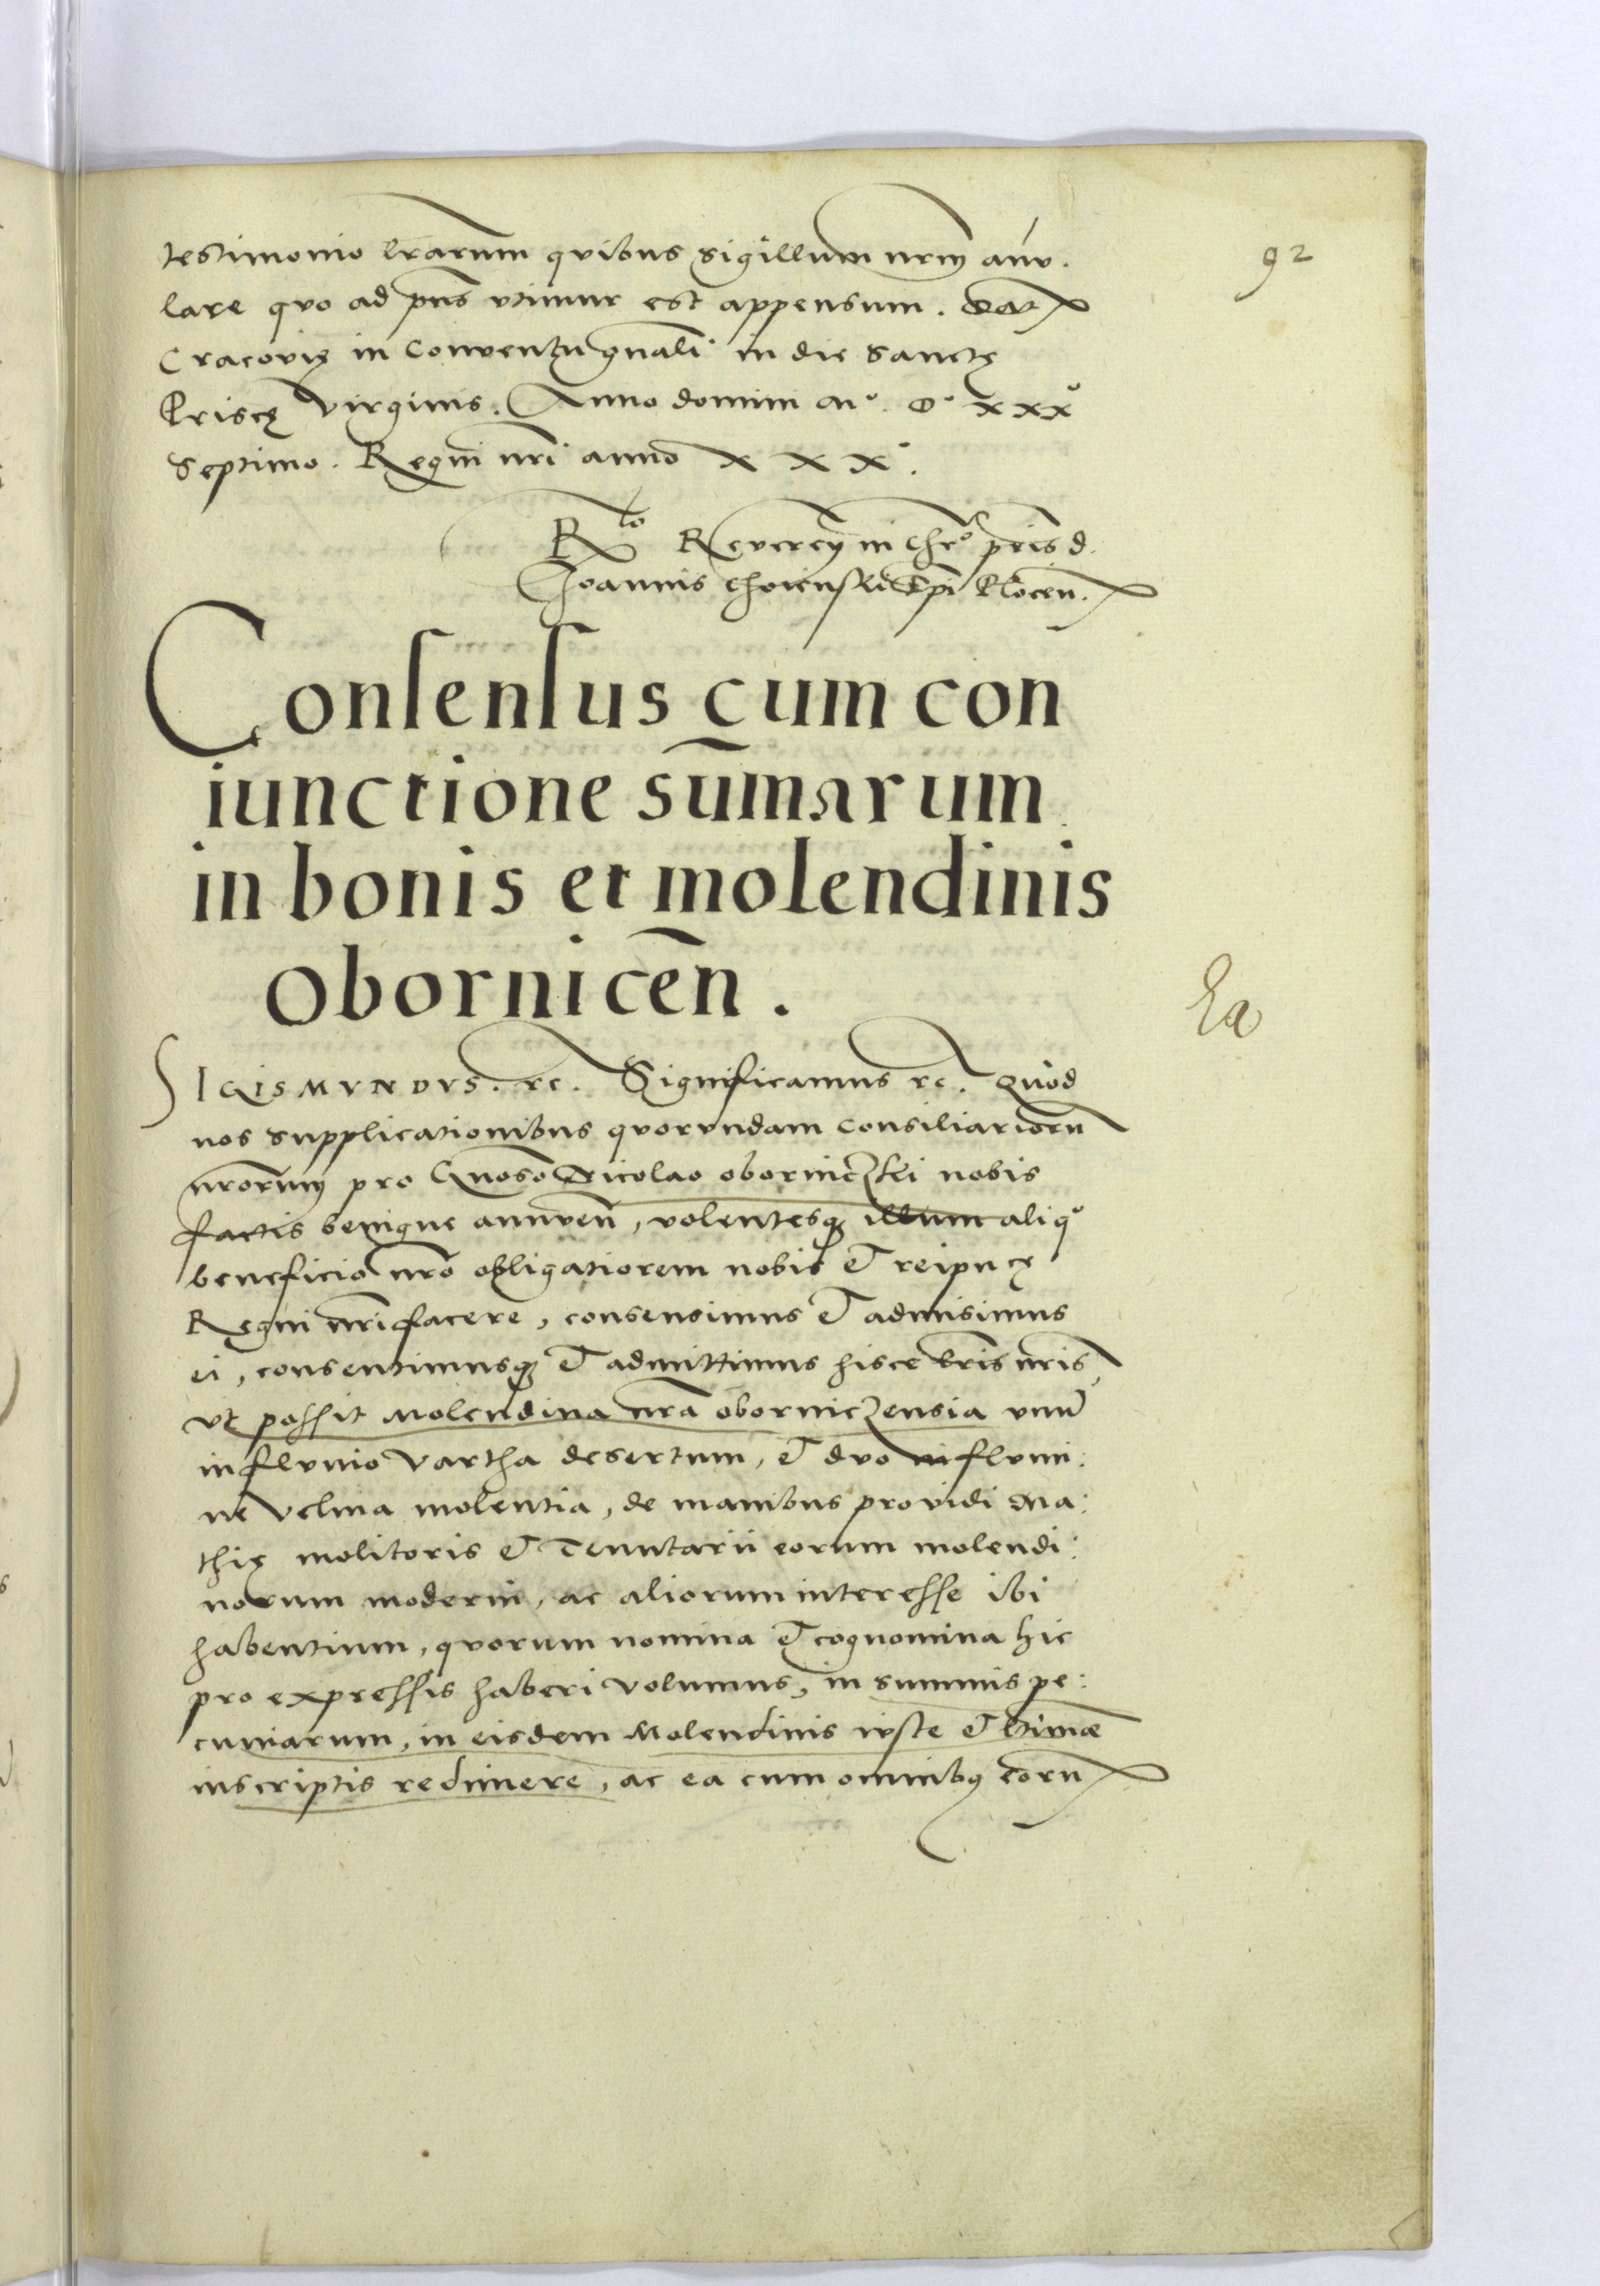 92
testimonio lrarum quibus sigillum nrm anu.
lare quo ad pns utimur est appensum. Dat
Cracovię in Conventu gnali in die Sanctę
Priscę Virginis. Anno domini M°. D° xxx°
Septimo. Regni nri anno x x x°.
Rlo Reveren in Chro pris d.
Joannis Choienski Epi Plocen.
Consensus cum con
iunctione sūmarum
in bonis et molendinis
obornicēn.
Ea
SIGISMVNDVS. rc. Significamus rc. Quod
nos supplicationibus quorundam Consiliarioru
nrorum pro Gnoso Nicolao oborniczski nobis
factis benigne annuen, volentesq illum aliq°
beneficio nro obligatiorem nobis et reipucę
Regni nri facere, consensimus et admisimus
ei, consentimusq et admittimus hisce lris nris,
ut possit Molendina nra oborniczensia unu
in fluvio Vartha desertum, et duo in fluvi:
ne Velna molentia, de manibus providi Ma:
thię molitoris et Tenutarii eorum molendi:
norum moderni, ac aliorum interesse ibi
habentium, quorum nomina et cognomina hic
pro expressis haberi volumus, in summis pe:
cuniarum, in eisdem Molendinis iuste et ltimæ
inscriptis redimere, ac ea cum omnibus eoru